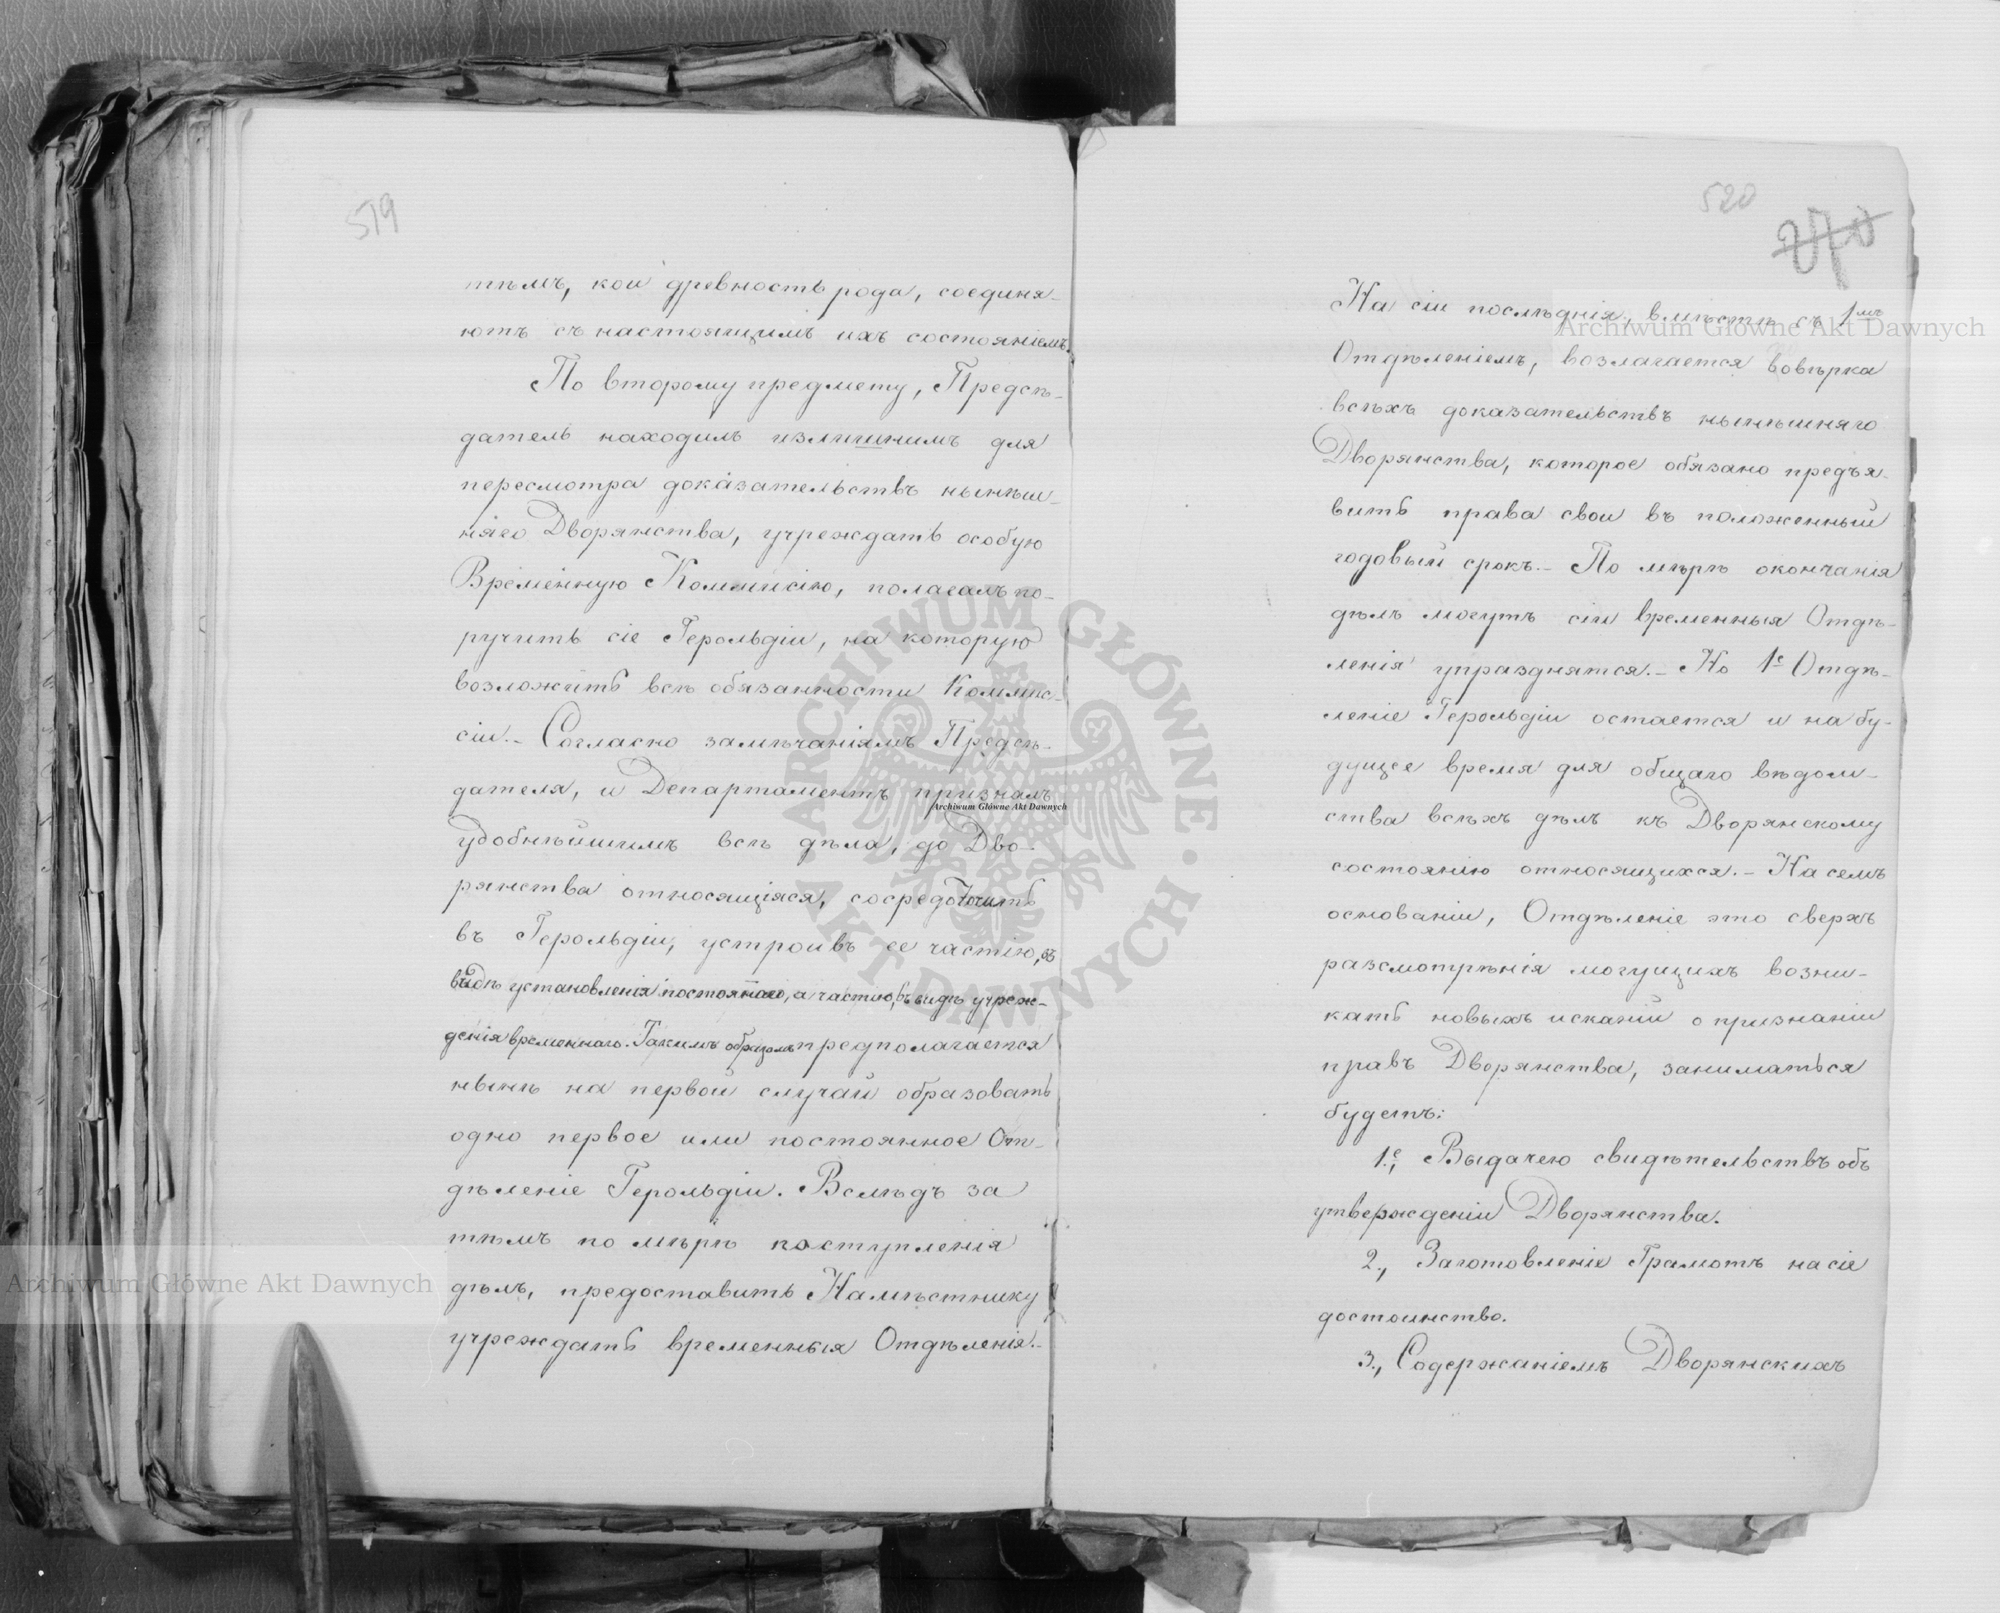 519
тѣмъ, кои древность рода, соединя-
ютъ съ настоящимъ ихъ состояніемъ.
По второму предмету, Предсѣ-
датель находилъ излишнимъ для
пересмотра доказательствъ нынѣш-
няго Дворянства, учреждать особую
Временную Коммисію, полагалъ по-
ручить сіе Герольдіи, на которую
возложить всѣ обязанности Коммис-
сіи.- Согласно замѣчаніямъ Предсѣ-
дателя, и Департаментъ призналъ
удобнѣйшимъ всѣ дѣла, до Дво-
рянства относящіяся, сосредоточить
въ Герольдіи, устроивъ ее частію, въ
видѣ установленія постояннаго, а частію, въ видѣ учреж-
денія временнаго. Такимъ образомъ предполагается
нынѣ на первой случай образовать
одно первое или постоянное От-
дѣленіе Герольдіи. Вслѣдъ за
тѣмъ по мѣрѣ поступленія
дѣлъ, предоставить Намѣстнику
учреждать временныя Отдѣленія.-
520
270
На сіи послѣднія, вмѣстѣ съ 1мъ
Отдѣленіемъ, возлагается повѣрка
всѣхъ доказательствъ нынѣшняго
Дворянства, которое обязано предъя-
вить права свои въ положенный
годовый срокъ.- По мѣрѣ окончанія
дѣлъ могутъ сіи временныя Отдѣ-
ленія упразднятся.- Но 1е Отдѣ-
леніе Герольдіи остается и на бу-
дущее время для общаго вѣдом-
ства всѣхъ дѣлъ къ Дворянскому
состоянію относящихся.- На семъ
основаніи, Отдѣленіе это сверхъ
разсмотрѣнія могущихъ возни-
кать новыхъ исканій о признаніи
правъ Дворянства, заниматься
будетъ:
1е, Выдачею свидѣтельствъ объ
утвержденіи Дворянства.
2., Заготовленіе Грамотъ на сіе
достоинство.
3., Содержаніемъ Дворянскихъ
Archiwum Główne Akt Dawnych
Archiwum Główne Akt Dawnych
Archiwum Główne Akt Dawnych
ARCHIWUM GŁÓWNE AKT DAWNYCH